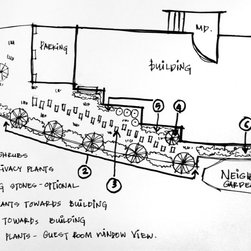 MD.
PARKING
BUILDING
5
4
6
2
3
NEIGH
GARDE
SHRUBS
IVACY PLANTS
NG STONES - OPTIONAL
ANTS TOWARDS BUILDING
TOWARDS BUILDING
PLANTS - GUEST ROOM WINDOW VIEW.